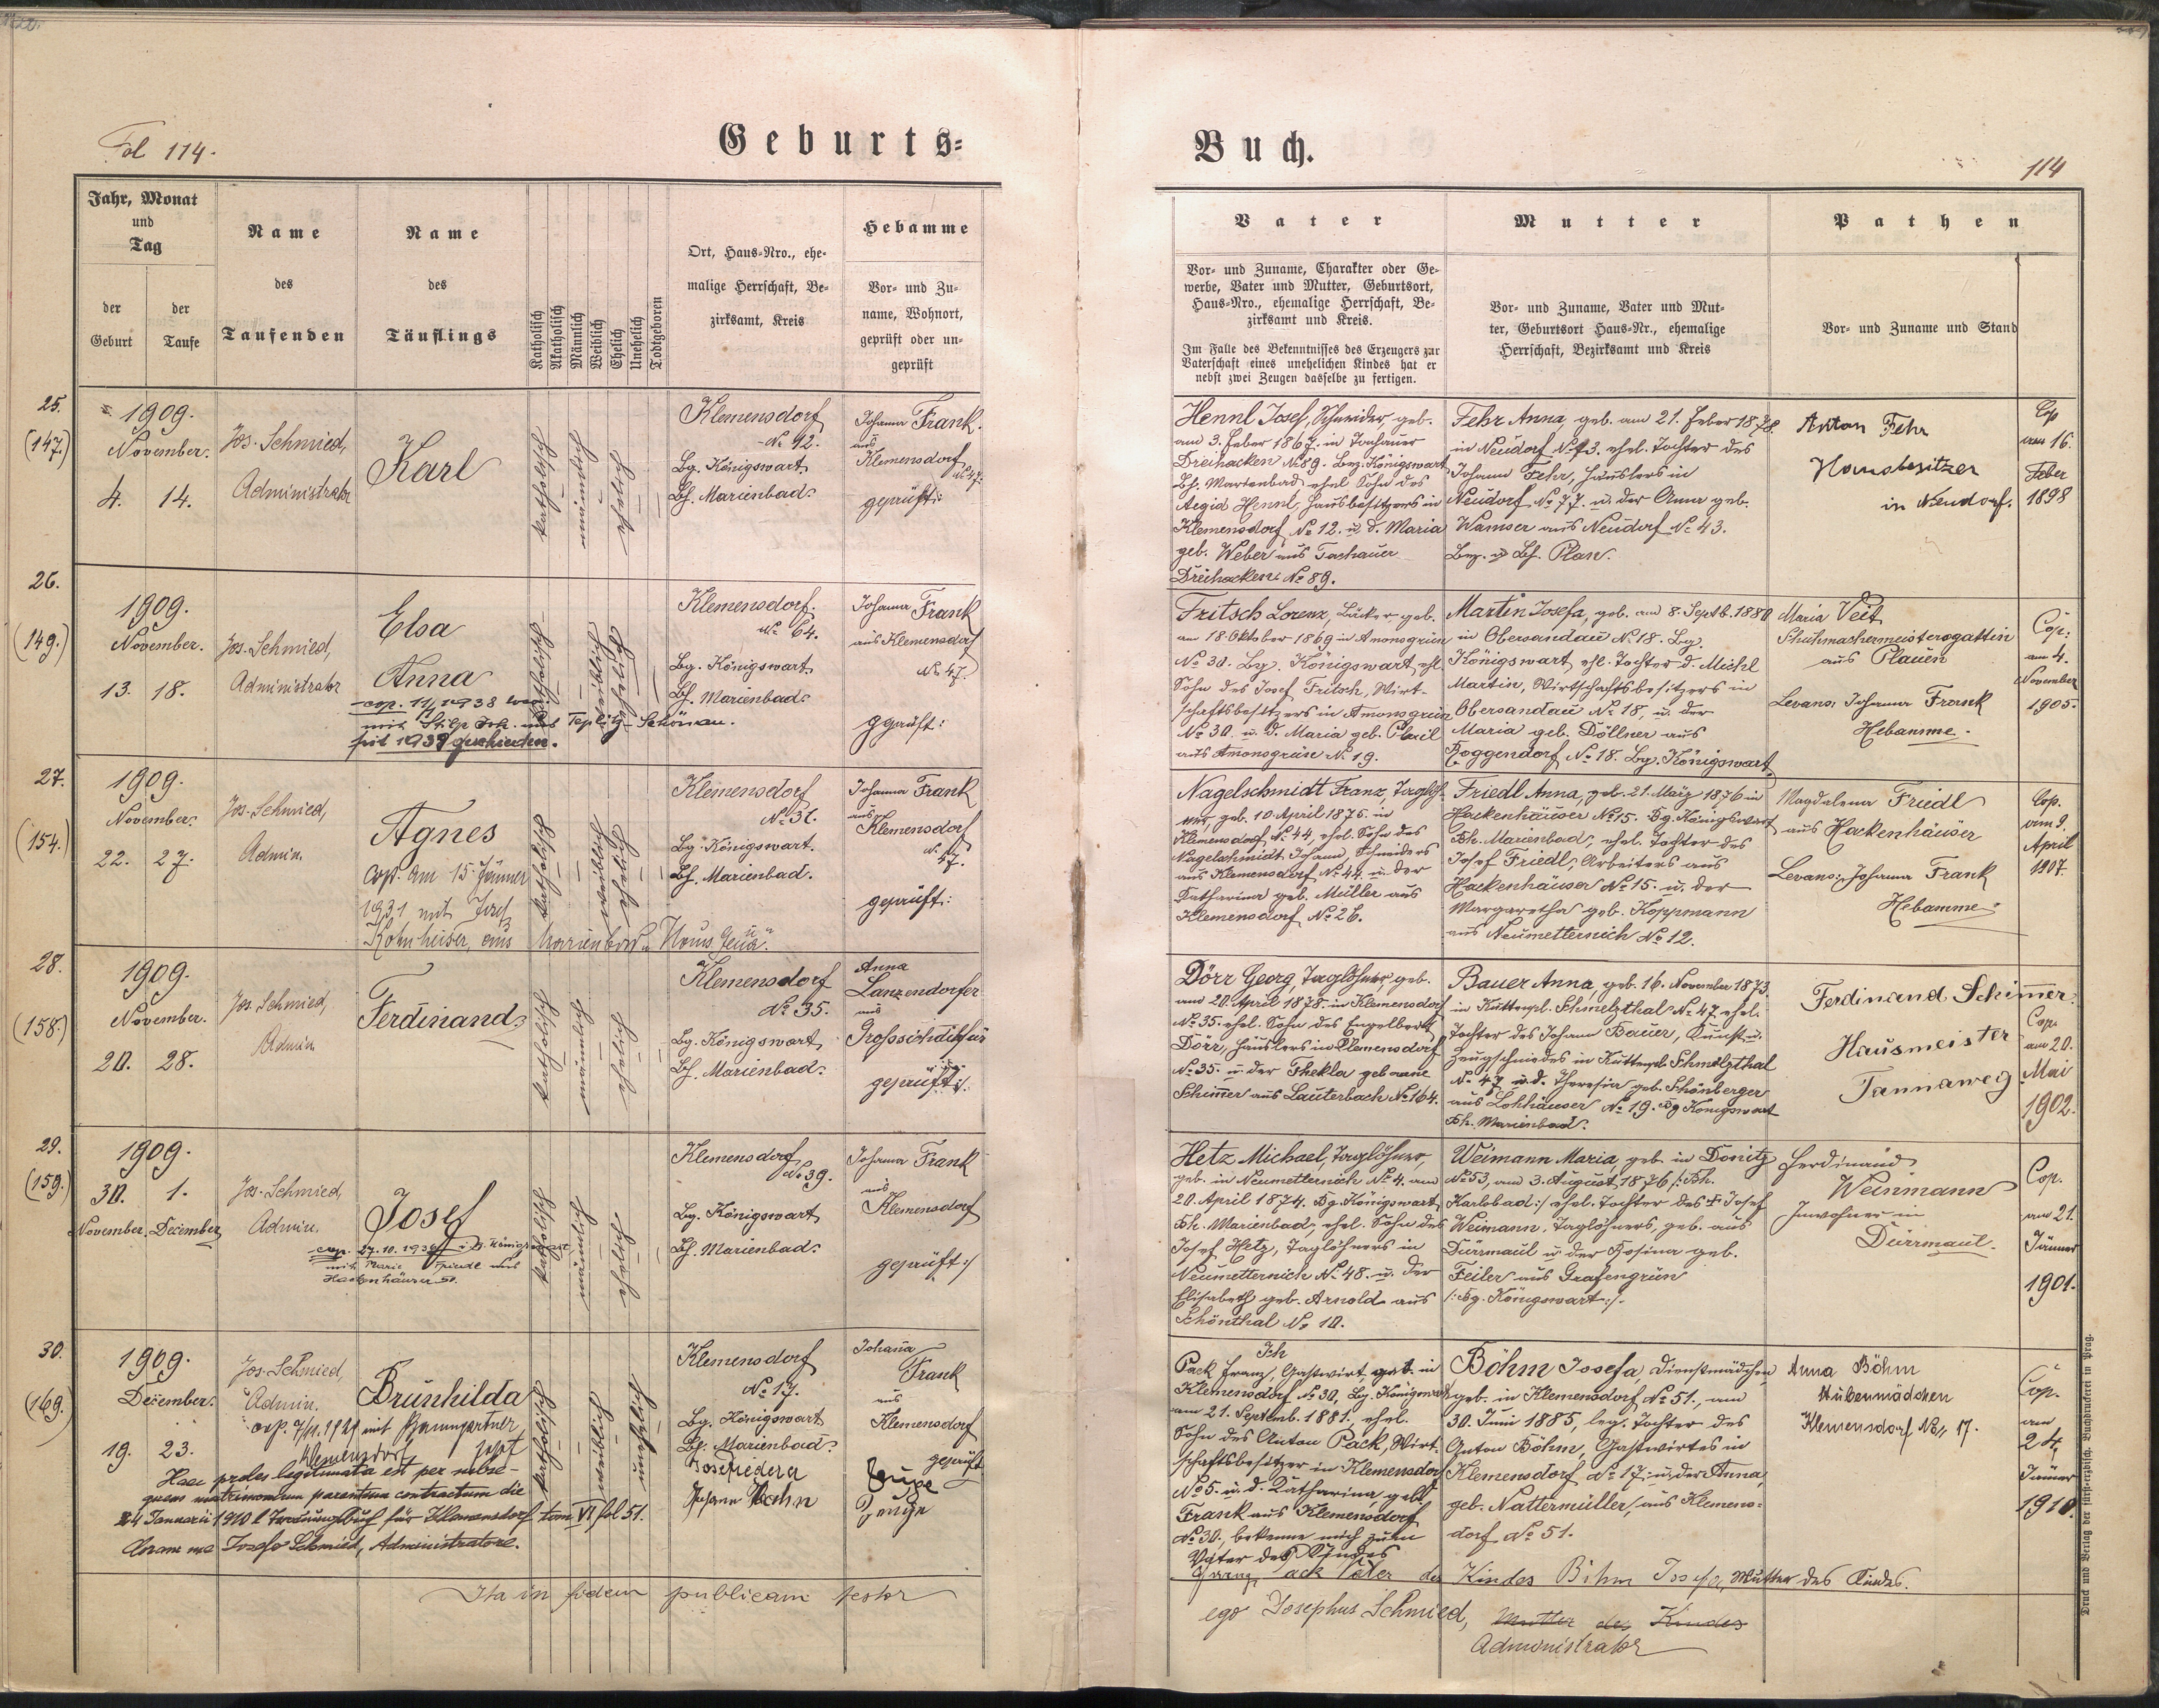 Fol 114.
Geburts-
Buch.
114
Jahr, Monat
und
Tag
der
Geburt
der
Taufe
Name
des
Taufenden
Name
des
Täuflings
Katholisch
Akatholisch
Männlich
Weiblich
Ehelich
Unehelich
Todtgeboren
Ort, Haus-Nro., ehe-
malige Herrschaft, Be-
zirksamt, Kreis
Hebamme
Vor- und Zu-
name, Wohnort,
geprüft oder un-
geprüft
Vater
Vor- und Zuname, Charakter oder Ge-
werbe, Vater und Mutter, Geburtsort,
Haus-Nro., ehemalige Herrschaft, Be-
zirksamt und Kreis.
Im Falle des Bekenntnisses des Erzeugers zur
Vaterschaft eines unehelichen Kindes hat er
nebst zwei Zeugen dasselbe zu fertigen.
Mutter
Vor- und Zuname, Vater und Mut-
ter, Geburtsort Haus-Nr., ehemalige
Herrschaft, Bezirksamt und Kreis
Pathen
Vor- und Zuname und Stand
25.
(147.)
1909.
November.
4. 14.
Jos. Schmied,
Administrator
Karl
katholisch
männlich
ehelich
Klemensdorf
No 12.
Bg. Königswart
Bh. Marienbad.
Johanna Frank.
aus
Klemensdorf
No 47.
geprüft:
Hennl Josef, Schneider, geb.
am 3. Feber 1867. in Tachauer
Dreihacken No 89. Bez. Königswart
Bh. Marienbad ehel Sohn des
Aegid Hennl, Hausbesitzers in
Klemensdorf No 12. u. d. Maria
geb. Weber aus Tachauer
Dreihacken No 89.
Fehr Anna, geb. am 21. Feber 1878.
in Neudorf No 43. ehel. Tochter des
Johann Fehr, Häuslers in
Neudorf No 77. u. der Anna geb.
Wamser aus Neudorf No 43.
Bez. u. Bh. Plan.
Anton Fehr
Hausbesitzer
in Neudorf.
Cop
am 16.
Feber
1898
26.
(149.)
1909.
November.
13. 18.
Jos. Schmied,
Administrator
Elsa
Anna
cop. 11/ 1938
mit Stilp Joh. aus Teplitz-Schönau.
seit 1939 geschieden.
katholisch
weiblich
ehelich
Klemensdorf.
No 64.
Bg. Königswart
Bh. Marienbad.
Johanna Frank
aus Klemensdorf
No 47.
geprüft:
Fritsch Lorenz, Bäcker, geb.
am 18 Oktober 1869 in Amonsgrün
No 30. Bg. Königswart, ehl
Sohn des Josef Fritsch, Wirt-
schaftsbesitzers in Amonsgrün
No 30. u. d. Maria geb.
aus Amonsgrün No 19.
Martin Josefa, geb. am 8. Septb. 1880
in Obersandau No 18. Bg.
Königswart, ehl. Tochter d. Michl
Martin, Wirtschaftsbesitzers in
Obersandau No 18, u. der
Maria geb. Döllner aus
Roggendorf No 18. Bg. Königswart
Maria Veit
Schuhmachermeistersgattin
aus Plauen
Levans: Johanna Frank
Hebamme.
Cop.
am 4.
November
1905.
27.
(154.)
1909.
November.
22. 27.
Jos. Schmied,
Admin.
Agnes
Cop. am 15. Jänner
1931 mit Josef
Kohnheiser, aus Marienbad, Haus
katholisch
weiblich
ehelich
Klemensdorf
No 31.
Bg. Königswart.
Bh. Marienbad.
Johanna Frank
aus
Klemensdorf
No 47.
geprüft:
Nagelschmidt Franz, Taglöh-
ner, geb. 10. April 1875. in
Klemensdorf No 44, ehel. Sohn des
Nagelschmidt Johann, Schneiders
aus Klemensdorf No 44. u. der
Katharina geb. Müller aus
Klemensdorf No 26.
Friedl Anna, geb. 21. März 1876 in
Hackenhäuser No 15. Bg. Königswart
Bh. Marienbad, ehel. Tochter des
Josef Friedl, Arbeiters aus
Hackenhäuser No 15. u. der
Margaretha geb. Koppmann
aus Neumetternich No 12.
Magdalena Friedl
aus Hackenhäuser
Levans: Johanna Frank
Hebamme
Cop.
am 9.
April
1907.
28.
(158.)
1909.
November.
20. 28.
Jos. Schmied,
Admin
Ferdinand
katholisch
männlich
ehelich
Klemensdorf
No 35.
Bg. Königswart
Bh. Marienbad.
Anna
Lanzendorfer
aus
geprüft:
Dörr Georg, Taglöhner, geb.
am 20. April 1878. in Klemensdorf
No 35. ehel. Sohn des Engelbert
Dörr, Häuslers in Klemensdorf
No 35. u der Thekla geborene
Schimer aus Lauterbach No 164.
Bauer Anna, geb. 16. November 1873.
in Kuttenpl. Schmelzthal No 47. ehel.
Tochter des Johann Bauer, Kunst- u.
Zeugschmiedes in Kuttenpl. Schmelzthal
No 47 u. d. Theresia geb. Schönberger
aus Lohhäuser No 19. Bg Königswart
Bh. Marienbad.
Ferdinand Schimmer.
Hausmeister
Tannaweg
Cop.
am 20.
Mai
1902.
29.
(159.)
1909.
30. 1.
November. December
Jos. Schmied,
Admin.
Josef
cop. 27.10.1934 Königswart
mit Marie Friedl aus
Hackenhäuser 50.
katholisch
männlich
ehelich
Klemensdorf
No 39.
Bg. Königswart
Bh. Marienbad.
Johanna Frank
aus
Klemensdorf
geprüft:/
Hetz Michael, Taglöhner,
geb. in Neumetternich No 4, am
20. April 1874. Bg. Königswart
Bh. Marienbad, ehel. Sohn des
Josef Hetz, Taglöhners in
Neumetternich No 48. u. der
Elisabeth geb. Arnold aus
Schönthal No 10.
Weimann Maria, geb. in Donitz
No 53, am 3. August 1876 /: Bh.
Karlsbad:/ ehel. Tochter des + Josef
Weimann, Taglöhners, geb. aus
Dürrmaul u. der Rosina geb.
Feiler aus Grafengrün
/: Bg. Königswart:/.
Ferdinand
Weinmann
Inwohner in
Dürrmaul.
Cop.
am 21.
Jänner
1901.
30.
(169.)
1909.
December.
19. 23.
Jos. Schmied
Admin.
Brunhilda
cop. 7/11. 1929 mit Baumgartner
Klemensdorf Josef
Haec proles legitimata est per subse-
quens matrimonium parentum contractum die
24 Januarii 1910 l. Trauungsbuch für Klemensdorf tom VI fol 51.
Coram me Josefo Schmied, Administratore.
katholisch
weiblich
unehelich
Klemensdorf
No 17.
Bg. Königswart
Bh. Marienbad.
Johann Hahn
Johana
Frank
aus
Klemensdorf
geprüft
Zeuge
Zeuge
Ich
Pack Franz, Gastwirt, geb. in
Klemensdorf No 30, Bg. Königswart
am 21. Septemb. 1881., ehel.
Sohn des Anton Pack, Wirt-
schaftsbesitzer in Klemensdorf
No 5. u. d. Katharina, geb.
Frank aus Klemensdorf
No 30., bekenne mich zum
Vater des Kindes
Franz Pack Vater des Kindes Böhm Josefa, Mutter des Kindes.
Böhm Josefa, Dienstmädchen
geb. in Klemensdorf No 51., am
30. Juni 1885, leg. Tochter des
Anton Böhm, Gastwirtes in
Klemensdorf No 17. u. der Anna,
geb. Nattermüller, aus Klemens-
dorf No 51.
Anna Böhm
Stubenmädchen
Klemensdorf No. 17.
Cop.
am
24.
Jänner
1910.
Ita in fidem publicam testor
ego Josephus Schmied, Mutter des Kindes
Administrator
Druck und Verlag der fürsterzbisch. Buchdruckerei in Prag.